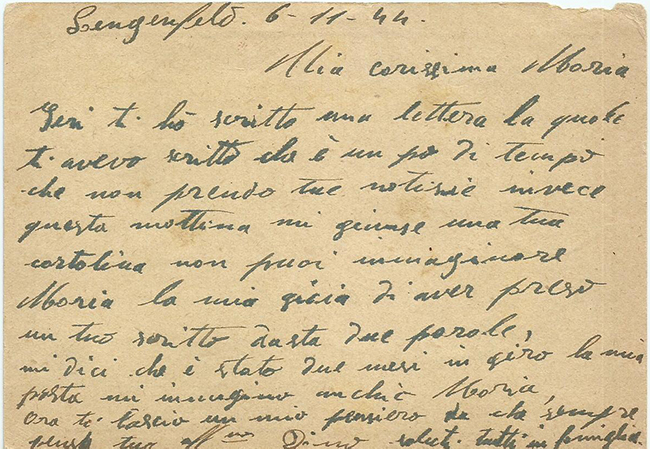 Lengenfeld. 6-11-44.
Mia carissima Maria
Ieri ti hò scritto una lettera la quale
ti avevo scritto che è un pò di tempo
che non prendo tue notisie invece
questa mattina mi giunse una tua
cartolina non puoi immaginare
Maria la mia gioia di aver preso
un tuo scritto basta due parole,
mi dici che è stato due mesi in giro la mia
posta mi immagino anchè Maria,
Ora ti lascio un mio pensiero che sempre
pensa tuo aff.mo Dino saluti tutti in famiglia.